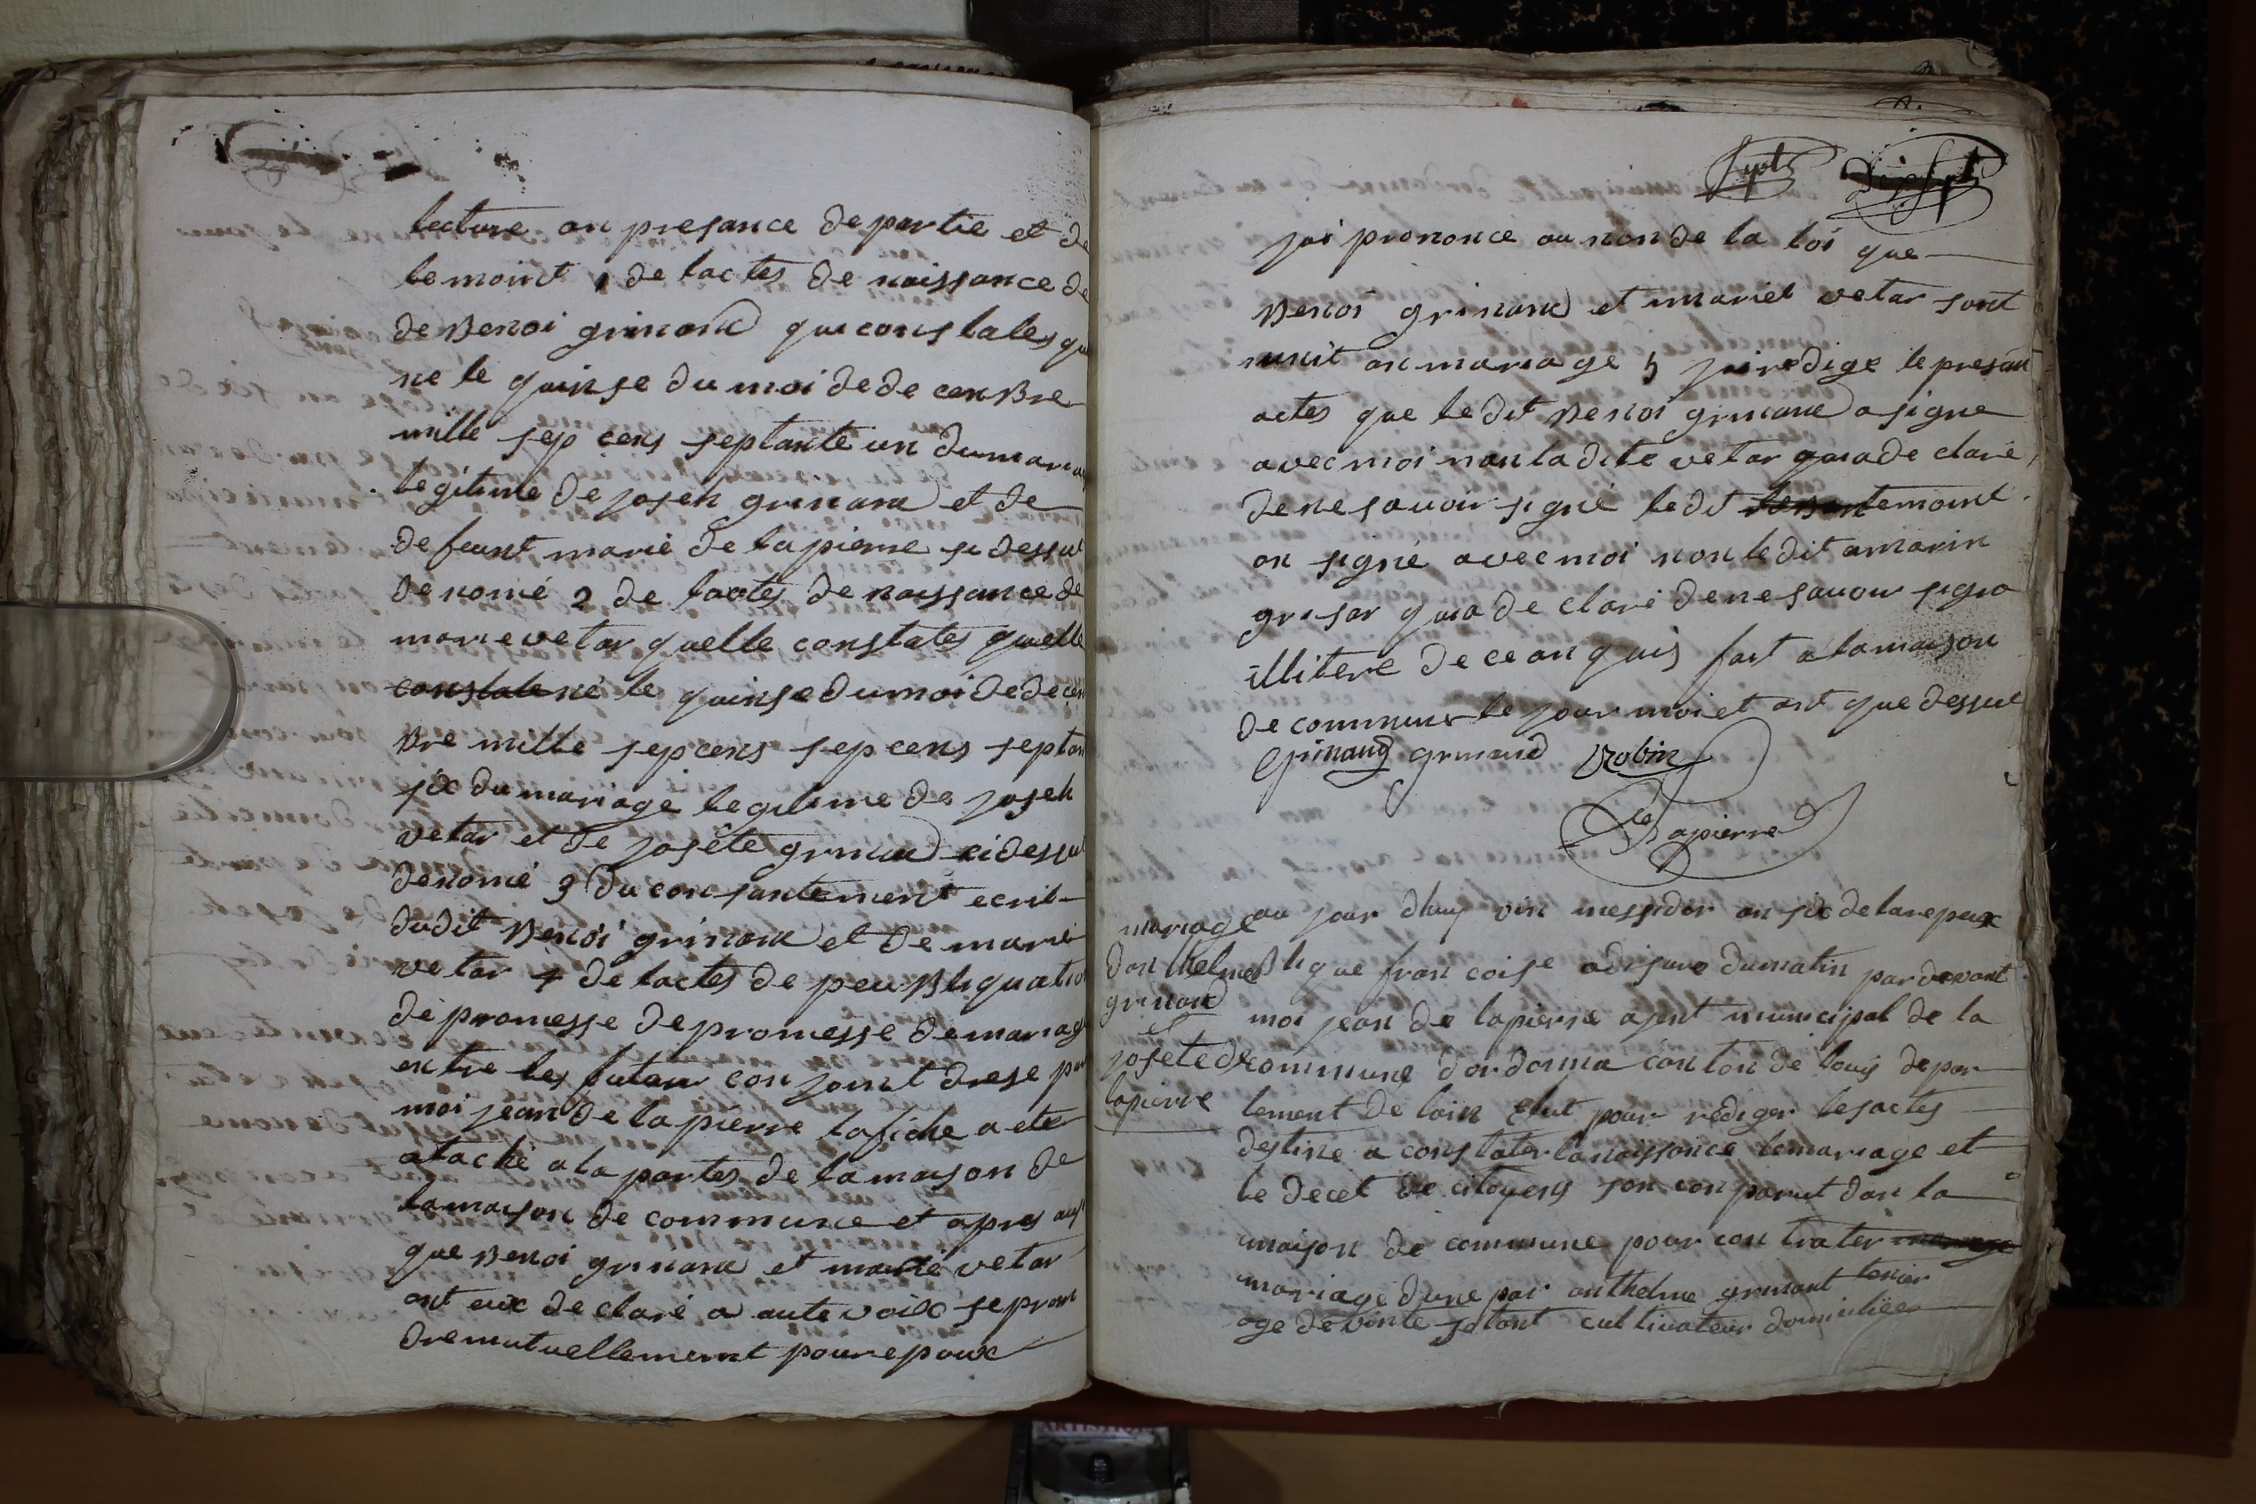 lecture an presance de partie et de
temoint 1 de lactes de naissance de
de Benoi grinand qui constates que
ne le quinse du moi de de cenbre
mille sep cens septante un du mariag
legitime de joseh grinand et de
defeunt marie de lapierre si dessut
denomé 2 de lactes de naissance de
marie vetar quelle constates quelle
constate né le quinse du moi de decen
bre mille sepcens sepcens septan
six du mariage legitime de joseh
vetar et de joséte grinand cidessut
denomé 3 du consantement ecrit
dudit Benoi grinand et de marie
vetar 4 de lactes de peubliquation
de promesse de promesse de mariage
entre les futeur conjoint drese par
moi jean de la pierre lafiche a eter
ataché a la portes de la maison de
la maison de commune et apres
que Benoi grinand et marié vetar
ont eux declaré a aute voix se pran
dre mutuellement pour epoux
jai prononce au non de la loi que
Benoi grinand et mariet vetar sont
unit an mariage 5 jai redige le presant
actes que le dit Benoi grinand a signe
avec moi non la dite vetar quia de claré
de ne savoir signé le dit temoint
on signé avec moi non le dit amarin
grusar quia de claré de ne savoir signa
illitere de ce an quis fait a la maison
de commune le jour moi et ant que dessut
Grinand grinand Robin
De lapierre
mariage
dan thelme
grinand
et
joséte de
lapierre
au jour dhuy vin messidor an six de la repeux
blique fran coise a dis ure du matin par devant
moi jean de lapierre ajent municipal de la
commune dordonna canton de louis depar
tement de lain elut pour rediger les actes
destine a constater la naissance le mariage et
le decet de citoyens son conparut dan la
maison de commune pour contrater mariage
mariage dune par anthelme grinant
age de vinte setant cultivateur domicilier